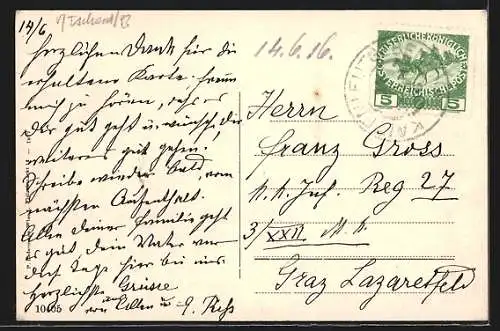 14/6
Herzlichen Dank für die
erhaltene Karte. Freue
mich zu hören, dass es
Dir gut geht u. wünsche, dir
weiteres gut gehen.
Schreibe wieder bald, vom
nächsten Aufenthalt.
Allen deiner Familie geht
es gut dein Vater war
dieser Tage hier bei uns
Herzlichste Grüsse
von Allen u.
10405
14.6.16.
KAISERLICHE KÖNIGLICHE
ÖSTERREICHISCHE POST
5 5
Herrn
Franz Gross
K. K. Inf. Reg 27
3/XXII M. K.
Graz Lazarettfeld